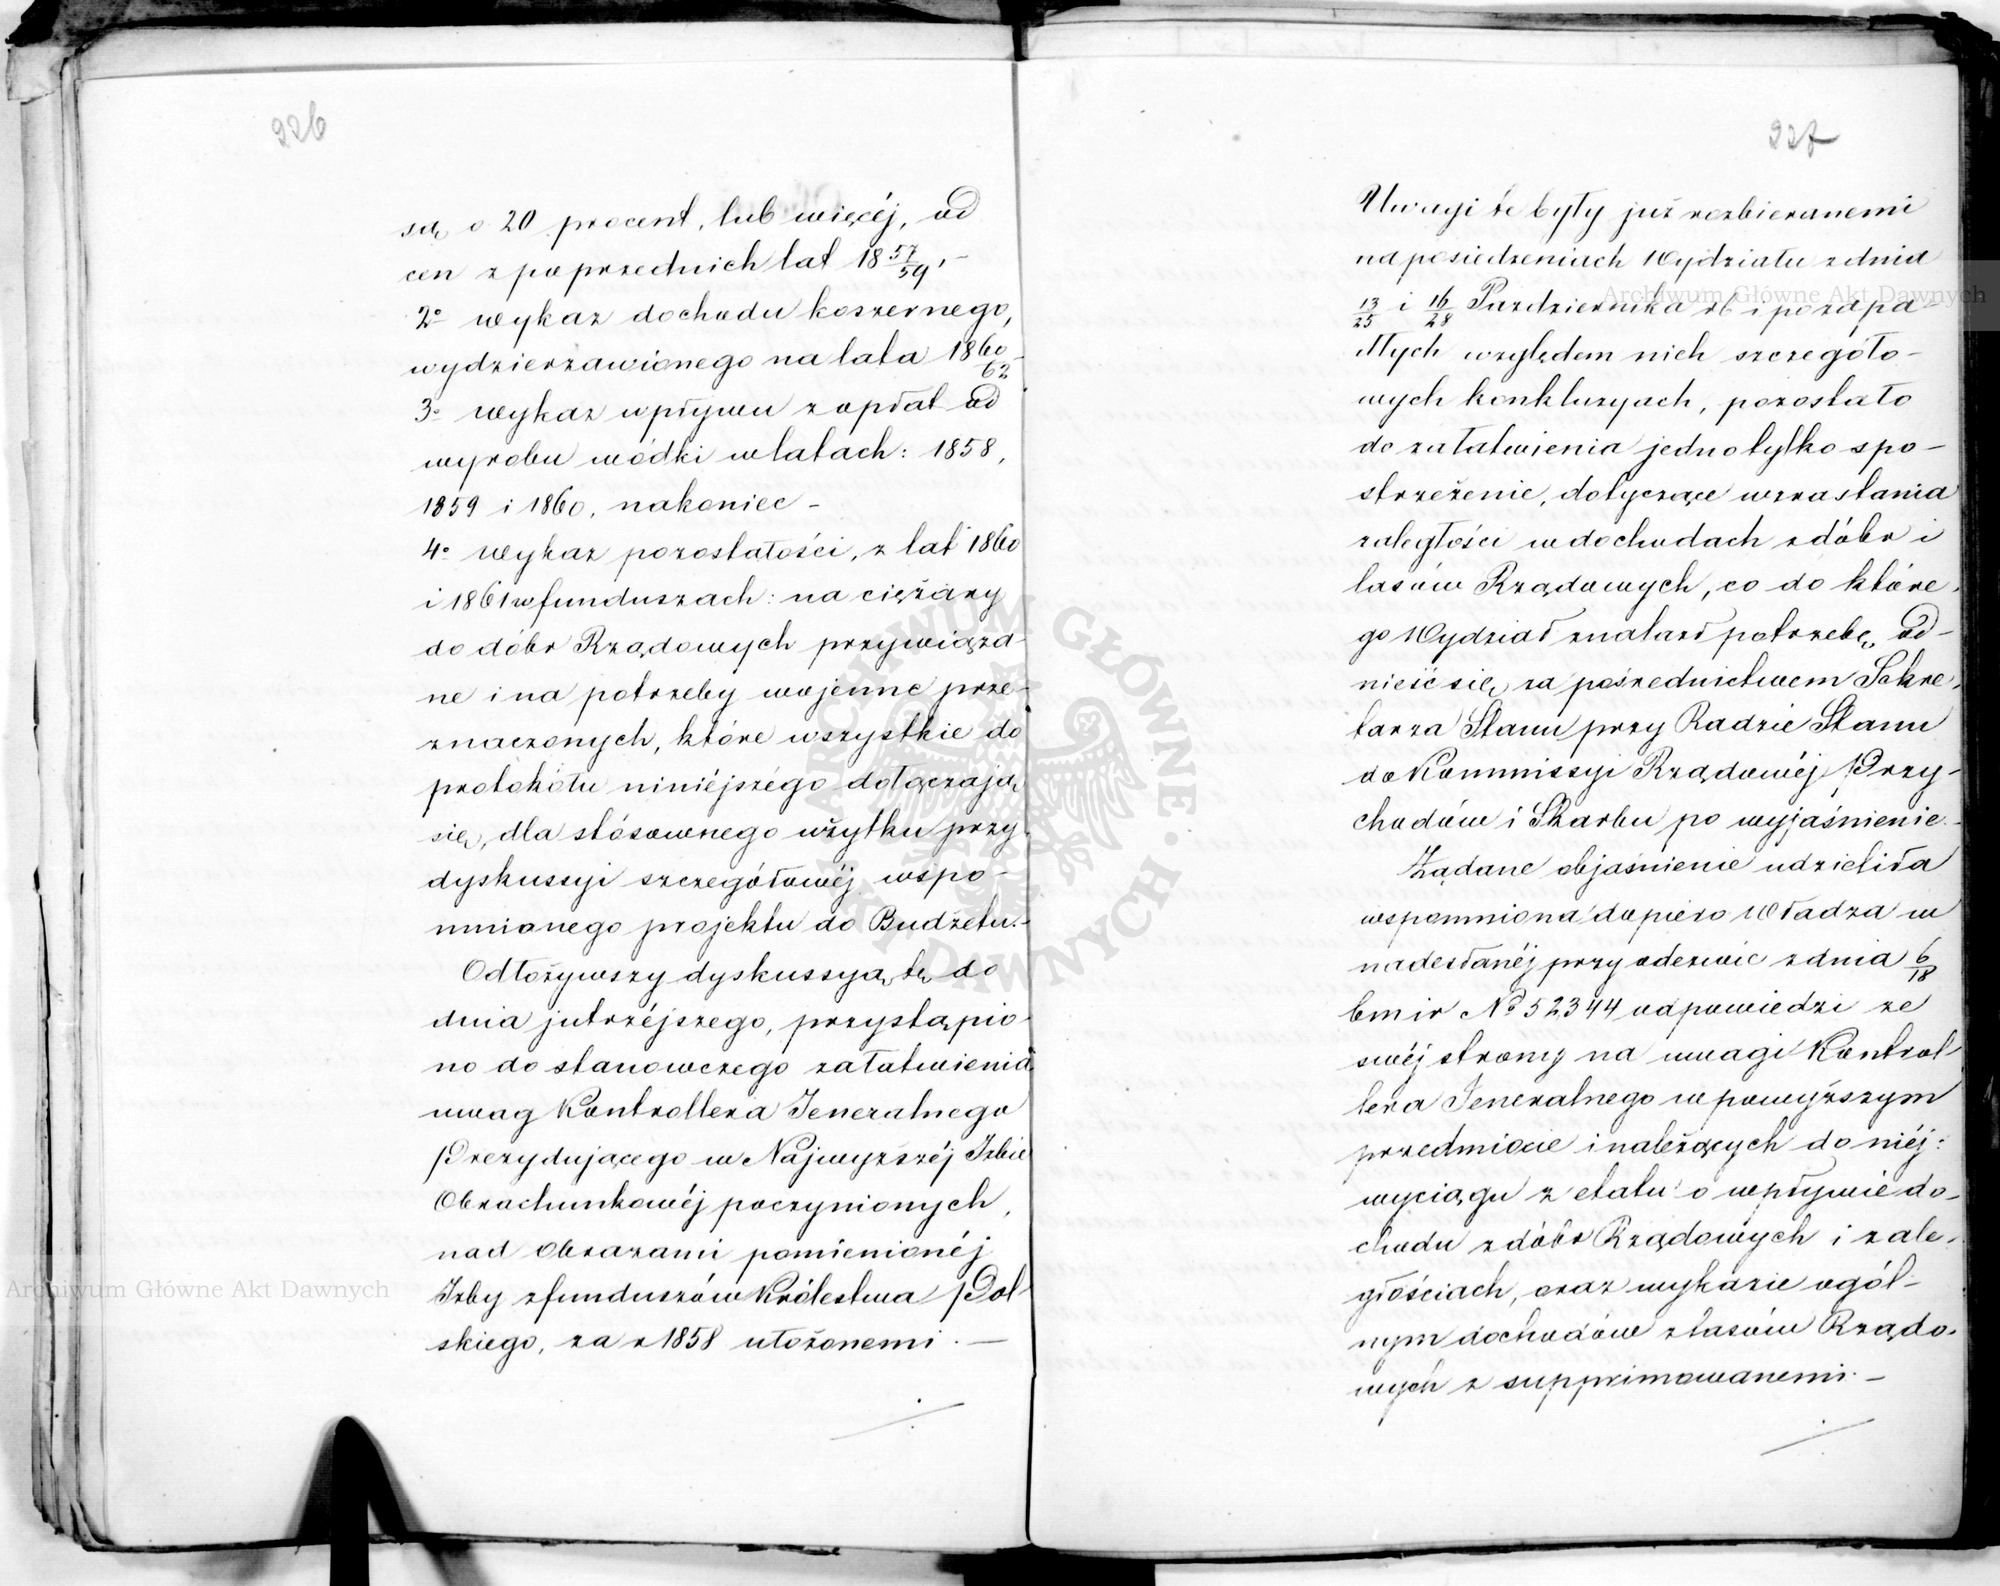 226
są o 20 procent, lub więcéj, od
cen z poprzednich lat 18 57/59, –
2o wykaz dochodu koszernego,
wydzierzawionego na lata 1860/62 –
3o wykaz wpływu z opłat od
wyrobu wódki w latach: 1858,
1859 i 1860, nakoniec –
4o wykaz pozostałości, z lat 1860
i 1861 w funduszach: na ciężary
do dóbr Rządowych przywiąza-
ne i na potrzeby wojenne prze-
znaczonych, które wszystkie do
protokółu niniéjszego dołączają
się, dla stósownego użytku przy
dyskussyi szczegółowéj wspo-
mnionego projektu do Budżetu. –
Odłożywszy dyskussyą tę do
dnia jutrzéjszego, przystąpio-
no do stanowczego załatwienia
uwag Kontrollera Jeneralnego
Prezydującego w Najwyższéj Izbie
Obrachunkowéj poczynionych,
nad obrazami pomienionéj
Izby z funduszów Królestwa Pol-
skiego, za r 1858 ułożonemi. —
227
Uwagi te były już rozbieranemi
na posiedzeniach Wydziału z dnia
13/25 i 16/28 Pazdziernika rb i po zapa-
dłych względem nich szczegóło-
wych konkluzyach, pozostało
do załatwienia jedno tylko spo-
strzeżenie, dotyczące wzrastania
zaległości w dochodach z dóbr i
lasów Rządowych, co do które-
go Wydział znalazł potrzebę od-
nieść się, za pośrednictwem Sekre-
tarza Stanu przy Radzie Stanu
do Kommissyi Rządowéj Przy-
chodów i Skarbu po wyjaśnienie. –
Żądane objaśnienie udzieliła
wspomniona dopiero Władza w
nadesłanéj przy odezwie z dnia 6/18
bm i r No 52344 odpowiedzi ze
swéj strony na uwagi Kontrol-
lera Jeneralnego w powyższym
przedmiocie i należących do niéj:
wyciągu z etatu o wpływie do-
chodu z dóbr Rządowych i zale-
głościach, oraz wykazie ogól-
nym dochodów z lasów Rządo-
wych z supprimowanemi. –
Archiwum Główne Akt Dawnych
Archiwum Główne Akt Dawnych
ARCHIWUM GŁÓWNE AKT DAWNYCH